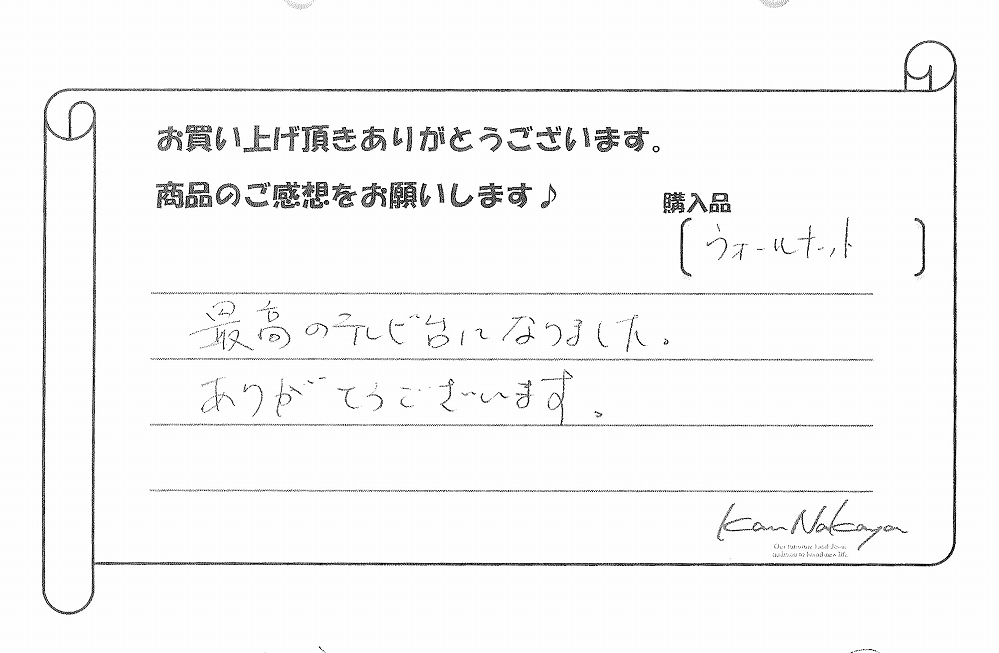 お買い上げ頂きありがとうございます。
商品のご感想をお願いします♪
購入品
〔ウォールナット〕
最高のテレビ台になりました。
ありがとうございます。
Kan Nakaya